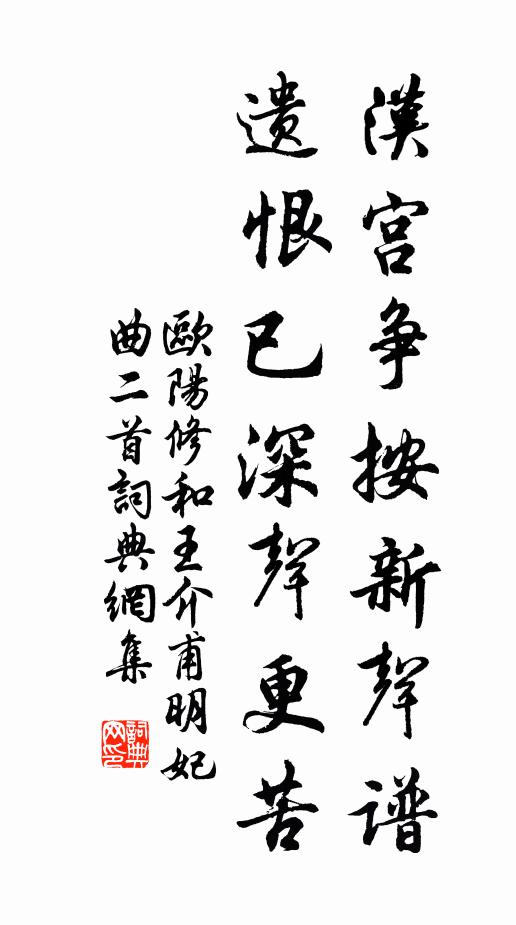 漢宮争按新聲譜
遺恨已深聲更苦
歐陽修和王介甫明妃
曲二首詞典網集
詞典
网印